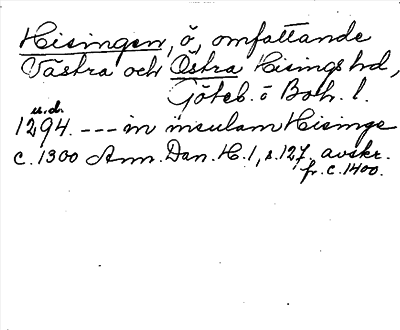 Hisingen, ö, omfattande
Västra och Östra Hisings hd,
Göteb. o Boh. l.
u.d.
1294. --- in insulam Hisinge
c. 1300 Ann. Dan. H. 1, s. 127, avskr.
fr. c. 1400.